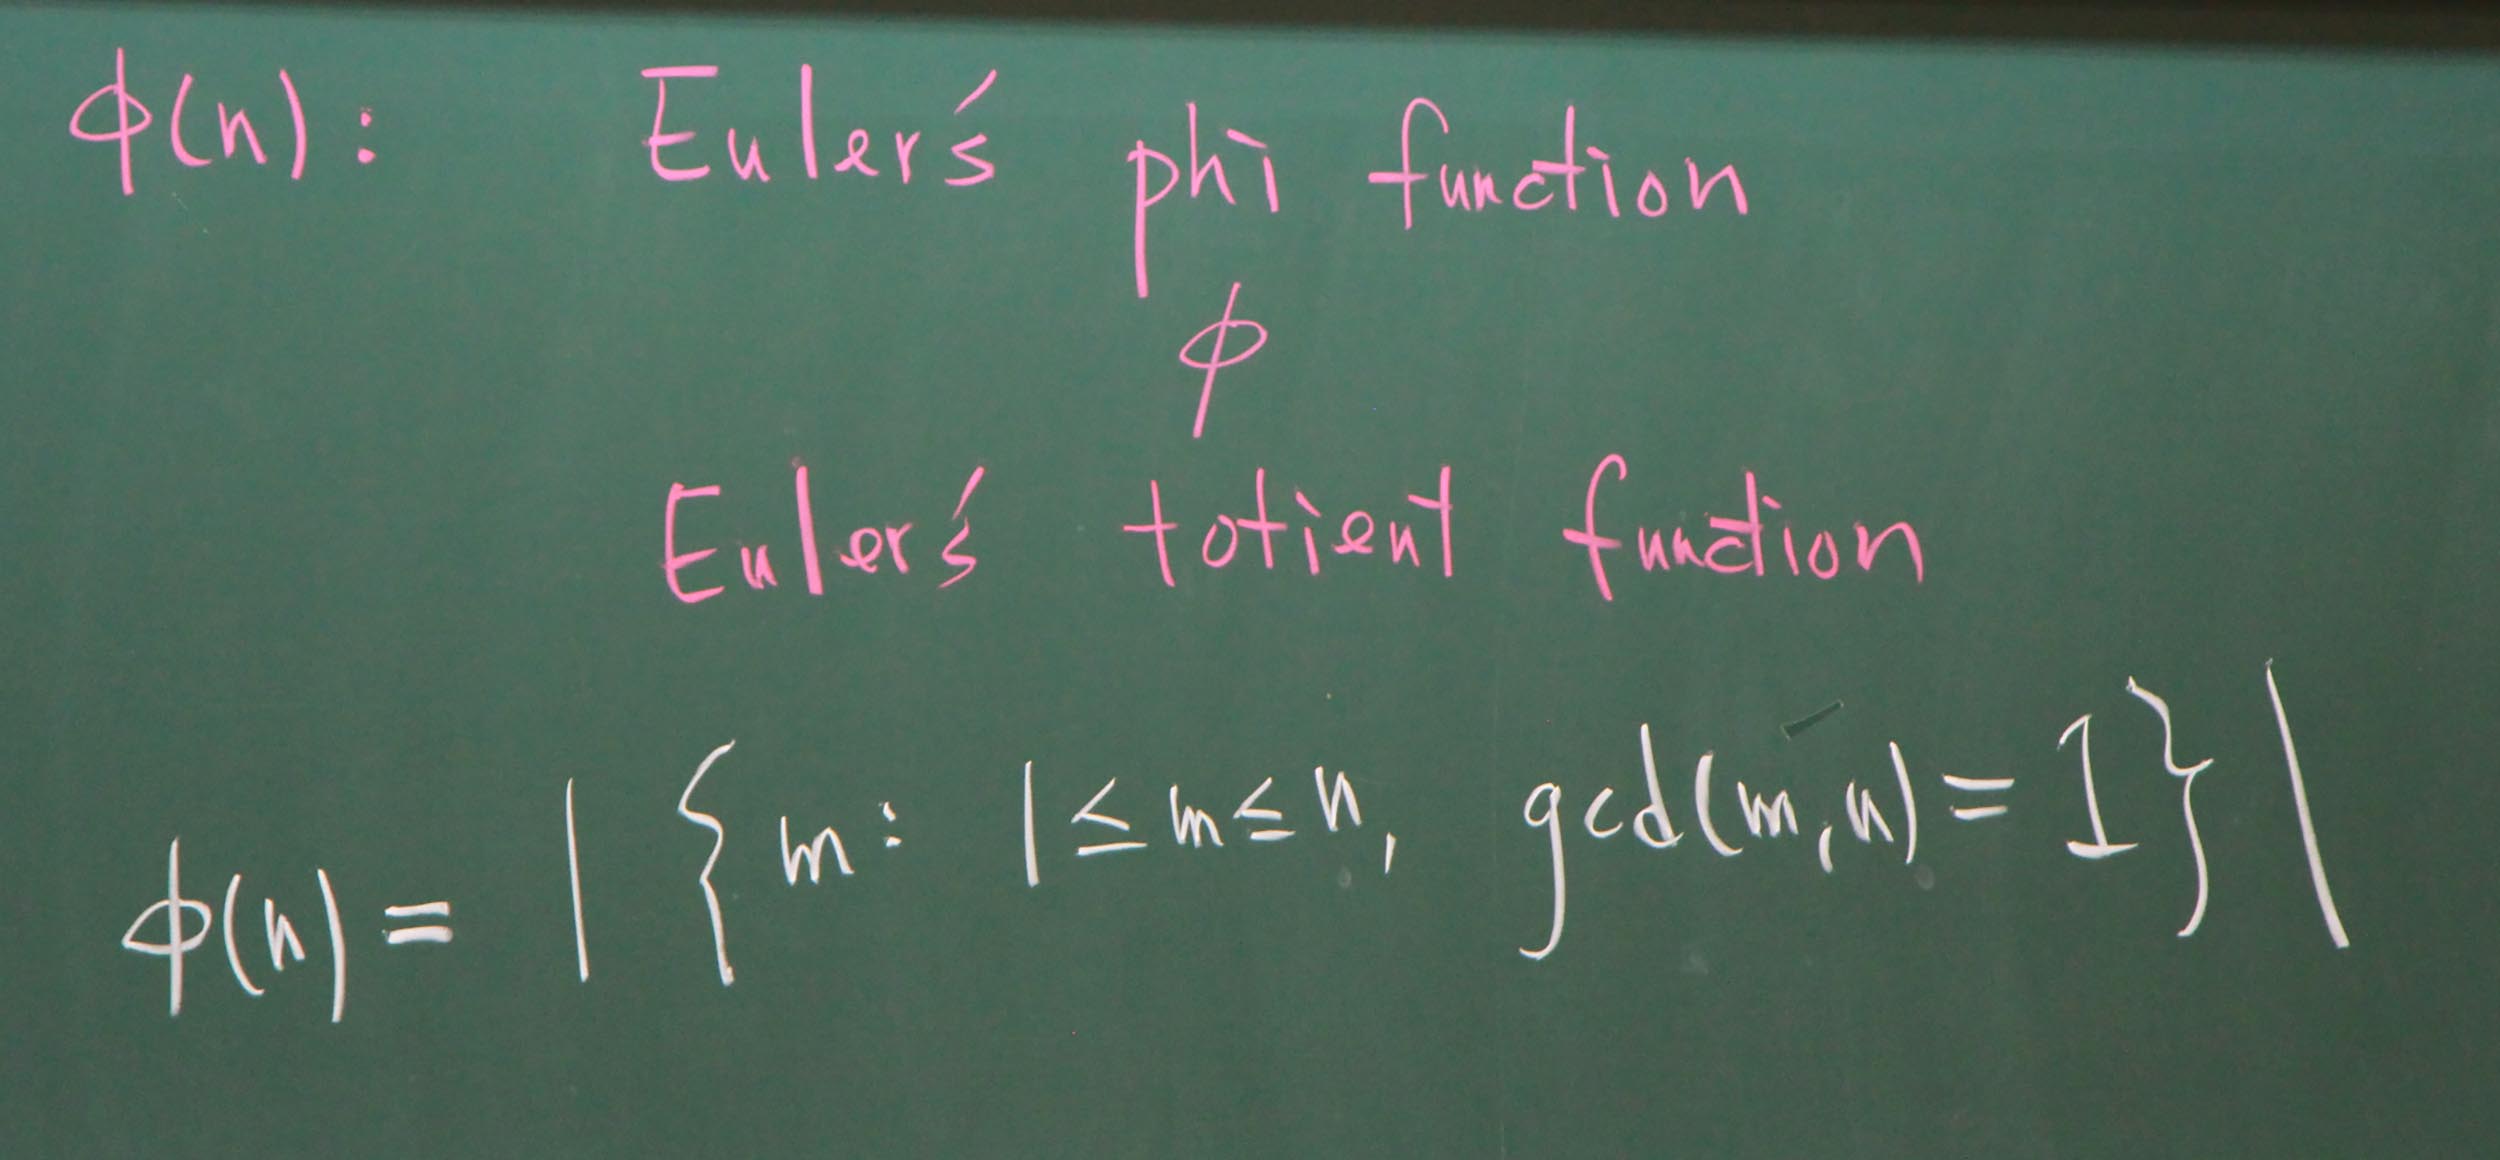 ϕ(n): Euler's phi function
ϕ
Euler's totient function
ϕ(n) = | { m: 1 ≤ m ≤ n, gcd(m,n) = 1 } |